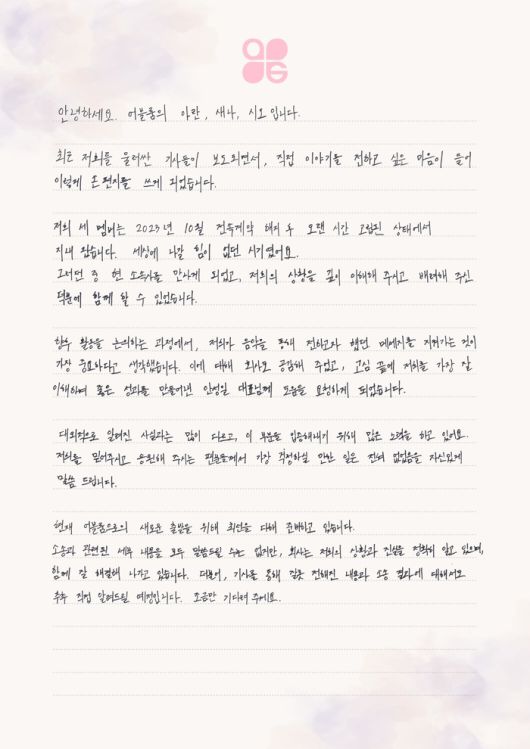 안녕하세요. 어블룸의 아란, 새나, 시오 입니다.
최근 저희를 둘러싼 기사들이 보도되면서, 직접 이야기를 전하고 싶은 마음이 들어
이렇게 손 편지를 쓰게 되었습니다.
저희 세 멤버는 2023년 10월 전속계약 해지 후 오랜 시간 고립된 상태에서
지내 왔습니다. 세상에 나갈 힘이 없던 시기였어요.
그러던 중 현 소속사를 만나게 되었고, 저희의 상황을 깊이 이해해 주시고 배려해 주신
덕분에 함께 할 수 있었습니다.
향후 활동을 논의하는 과정에서, 저희가 음악을 통해 전하고자 했던 메세지를 지켜가는 것이
가장 중요하다고 생각했습니다. 이에 대해 회사도 공감해 주었고, 고심 끝에 저희를 가장 잘
이해하며 좋은 성과를 만들어낸 안성일 대표님께 도움을 요청하게 되었습니다.
대외적으로 알려진 사실과는 많이 다르고, 이 부분을 입증해내기 위해 많은 노력을 하고 있어요.
저희를 믿어주시고 응원해 주시는 팬분들께서 가장 걱정하실 만한 일은 전혀 없었음을 자신있게
말씀 드립니다.
현재 어블룸으로의 새로운 출발을 위해 최선을 다해 준비하고 있습니다.
소송과 관련된 세부 내용을 모두 말씀드릴 수는 없지만, 회사는 저희의 상황과 진실을 정확히 알고 있으며,
함께 잘 해결해 나가고 있습니다. 더불어, 기사를 통해 잘못 전해진 내용과 소송 결과에 대해서도
추후 직접 알려드릴 예정입니다. 조금만 기다려 주세요.